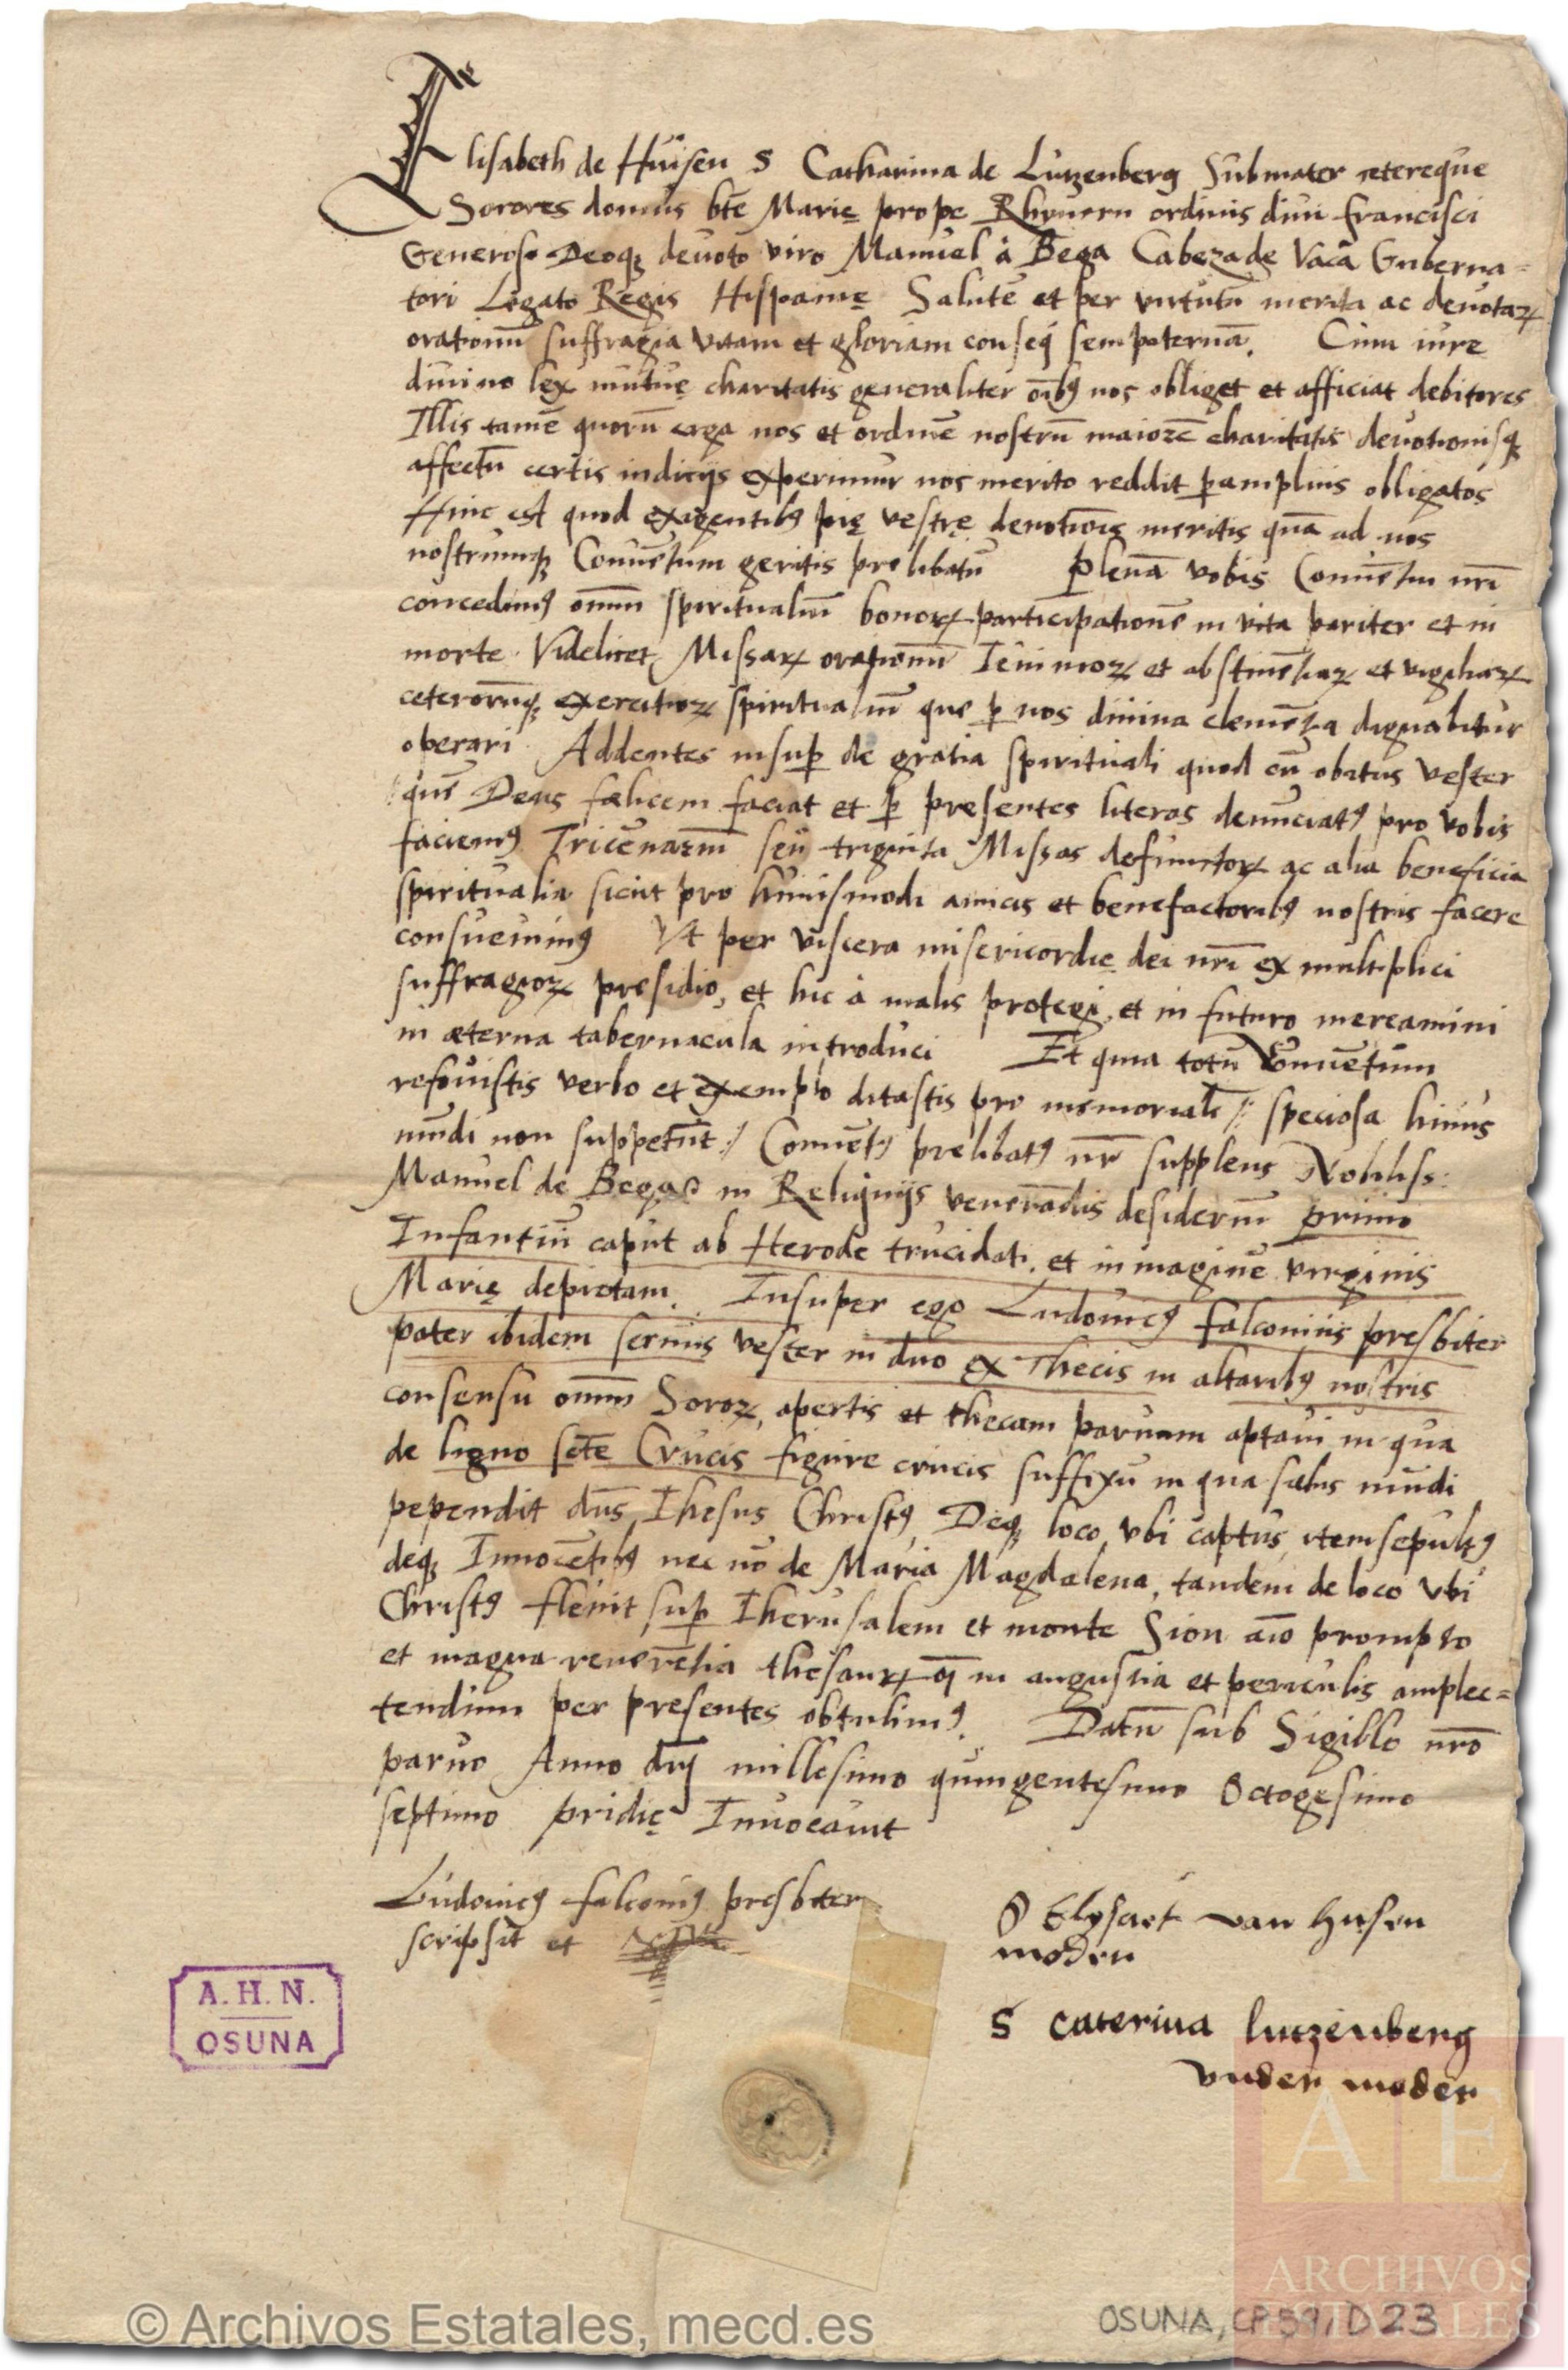 Elisabeth de Hüisen S Catharina de Lutzenberg Submater cetereque
Sorores domus bte Marię prope Rhenum ordinis diui francisci
Generoso Deoqꝫ deuoto viro Manuel à Bega Cabeza de Vaca Guberna=
tori Legato Regis Hispanię Salutē et per virtutū merita ac deuotaꝝ
orationū suffragia vitam et gloriam conseq̄ sempiternā. Cum iure
diuino lex mutuę charitatis generaliter oībꝰ nos obliget et afficiat debitores
Illis tamē quorū erga nos et ordinē nostrū maiorē charitatis deuotionisqꝫ
affectū certis indicijs experimur nos merito reddit ꝑamplius obligatos
Hinc est quod exigentibꝰ pię vestrę deuotiōis meritis quā ad nos
nostrumqꝫ Conuētum geritis prelibatū plenā vobis Conuētui nrī
concedimꝰ omniū spiritualiū bonoꝝ participationē in vita pariter et in
morte. Videlicet Missaꝝ orationū Ieiunioꝝ et abstinētiaꝝ et vigiliaꝝ
ceterorūqꝫ exercitioꝝ spiritualiū que ꝑ nos diuina clemētia dignabitur
operari. Addentes insuꝑ de gratia spirituali quod cū obitus vester
/:quē Deus fælicem faciat et ꝑ presentes literas denūciatꝰ pro vobis
faciemꝰ Tricenariū seu triginta Missas defunctoꝝ ac alia beneficia
spiritualia sicut pro huiusmodi amicis et benefactoribꝰ nostris facere
consueuimꝰ Vt per viscera misericordię dei nrī ex multiplici
suffragioꝝ presidio, et hic à malis protegi, et in futuro mereamini
in æterna tabernacula introduci Et quia totū Conuētum
refouistis verbo et exemplo ditastis pro memoriali /: speciosa huius
mūdi non suppetūt:/ Conuētꝰ prelibatꝰ nr̄ supplens Nobiliss:
Manuel de Begas in Reliquijs venerādis desideriū primo
Infantiū caput ab Herode trucidati, et in imaginē virginis
Marię depictam. Insuper ego Ludouicꝰ falconius presbiter
pater ibidem seruus vester in duo ex Thecis in altaribꝰ nostris
consensu omniū Soroꝝ, apertis et thecam paruam aptaui in qua
de ligno sctē Crucis figure crucis suffixū in qua salus mūdi
pependit dn̄s Ihesus Christꝰ Deqꝫ loco vbi captus, item sepultꝰ
deqꝫ Innocētibꝰ nec nō de Maria Magdalena, tandem de loco vbi
Christꝰ fleuit suꝑ Iherusalem et monte Sion aīo prompto
et magna reuerētia thesauꝝ q̄ in angustia et periculis amplec=
tendum per presentes obtulimꝰ. Datū sub Sigillo nr̄o
paruo Anno dnj̄ millesimo quingentesimo Octogesimo
septimo pridię Inuocauit
Ludouicꝰ falconiꝰ presbiter
scripsit et
S Elysaet van husen
moder
S Caterina lutzenberg
vnder moder
A. H. N.
OSUNA
A E
ARCHIVOS
ESTATALES
© Archivos Estatales, mecd.es
OSUNA, CP 59, D 23